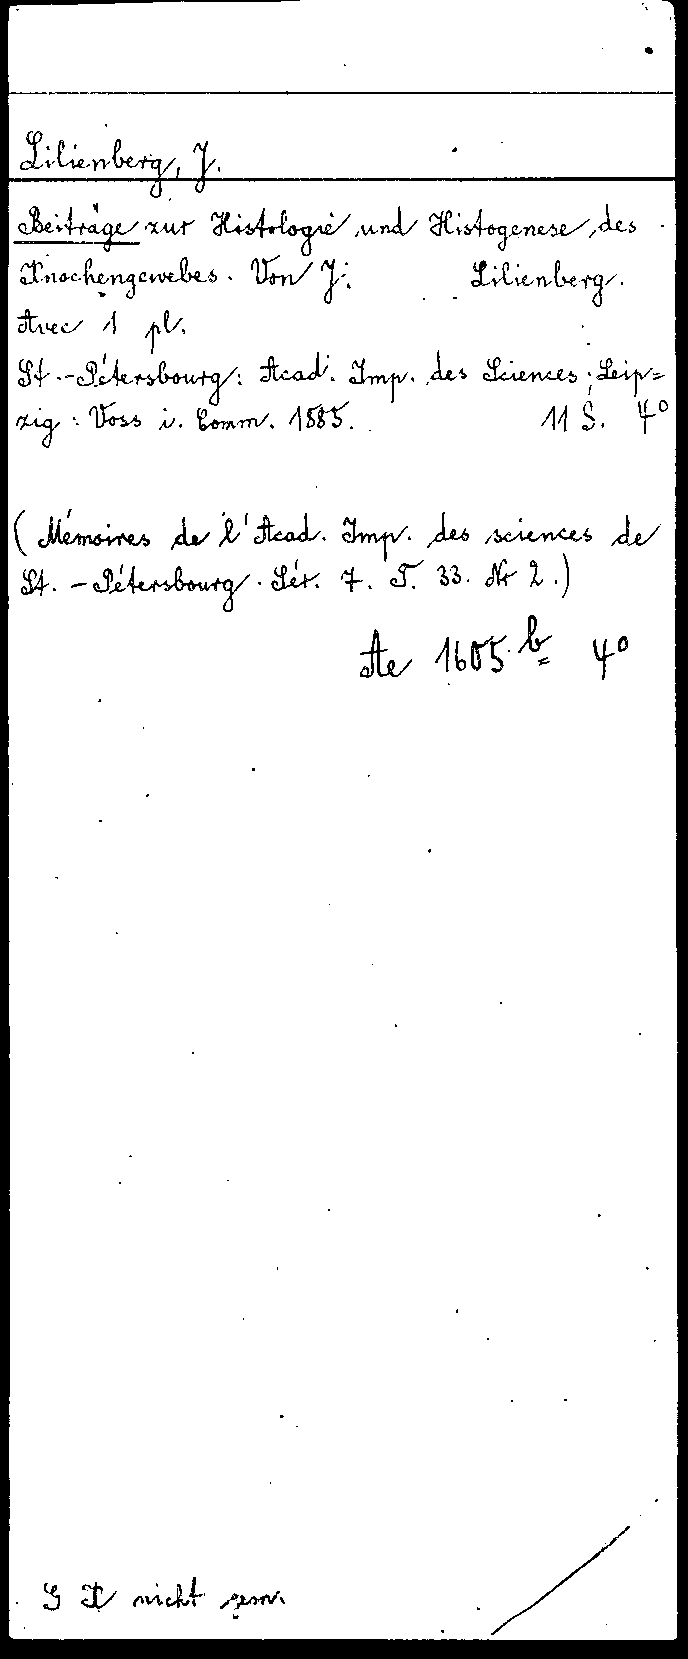 Lilienberg, J.
Beiträge zur Histologie und Histogenese des
Knochengewebes. Von J. Lilienberg.
Avec 1 pl.
St.-Pétersbourg: Acad. Imp. des Sciences; Leip=
zig: Voss i. Comm. 1885. 11 S. 4°
(Mémoires de l'Acad. Imp. des sciences de
St.-Pétersbourg. Sér. 7. T. 33. Nr 2.)
Ae 1605 b 4°
nicht